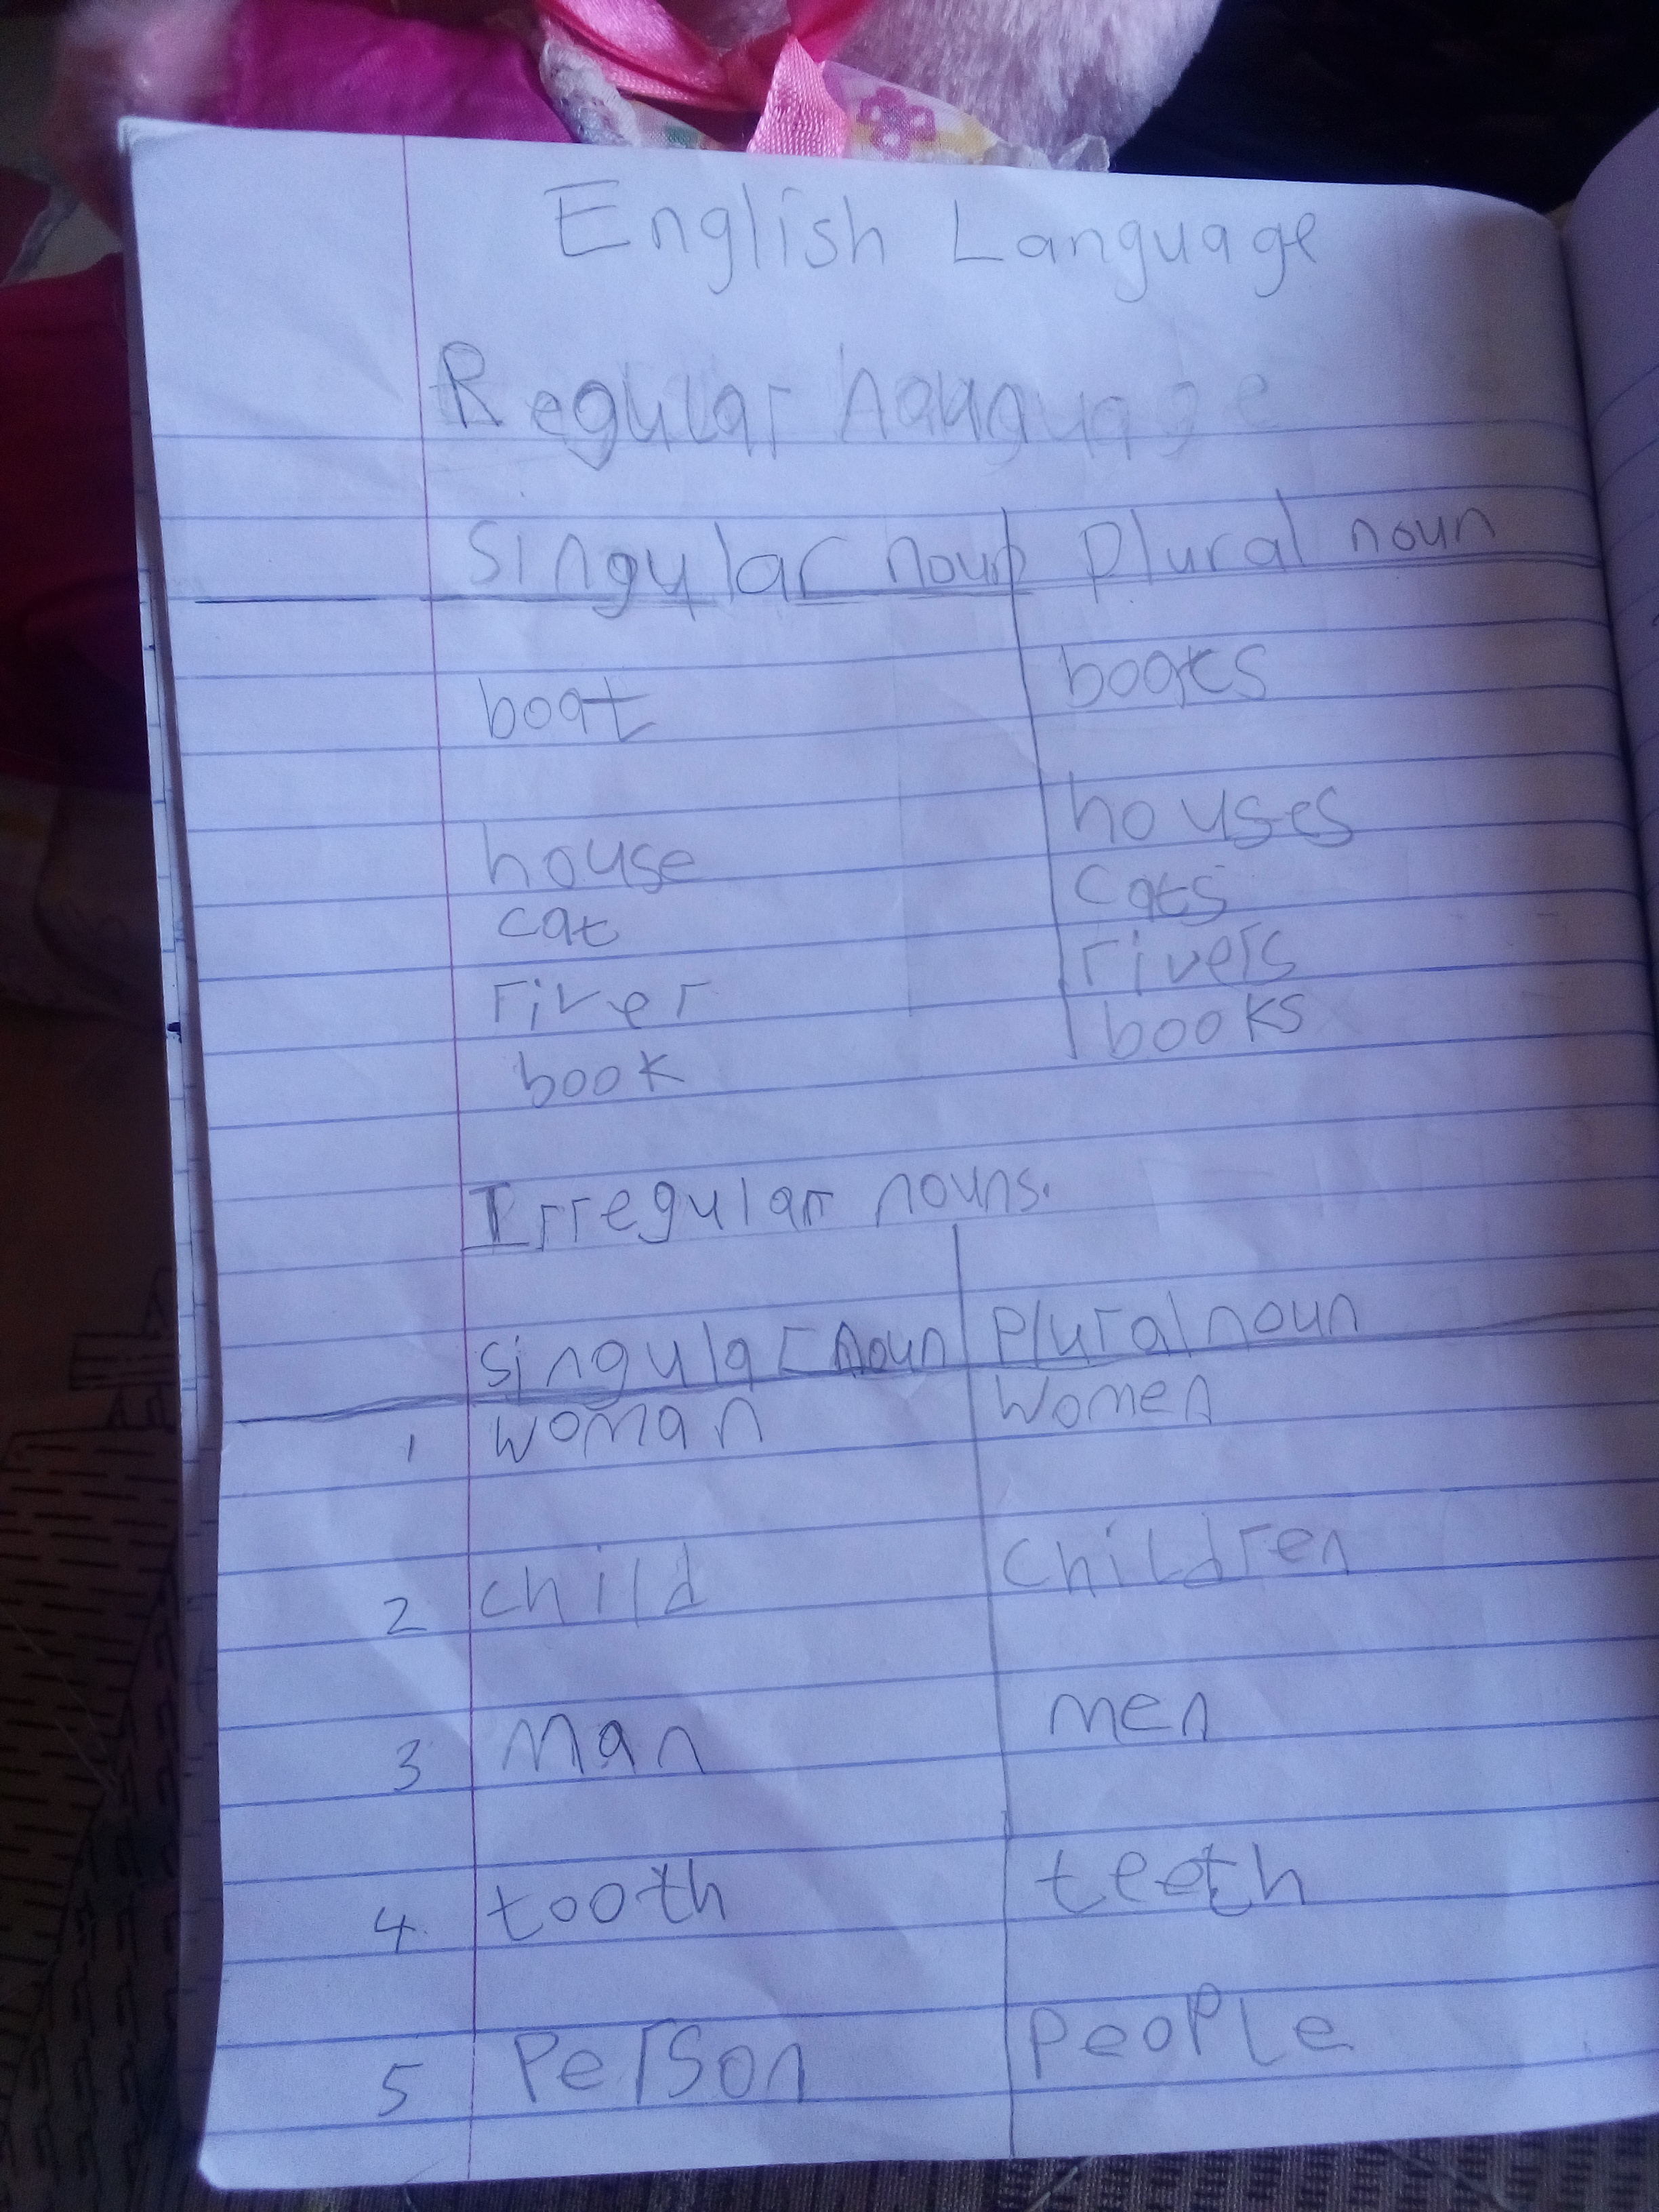 English Language
Regular
Singular noun Plural noun
boat boats
house houses
cat cats
river rivers
book books
Irregular nouns.
singular noun Plural noun
1 woman women
2 child children
3 man men
4. tooth teeth
5 Person People